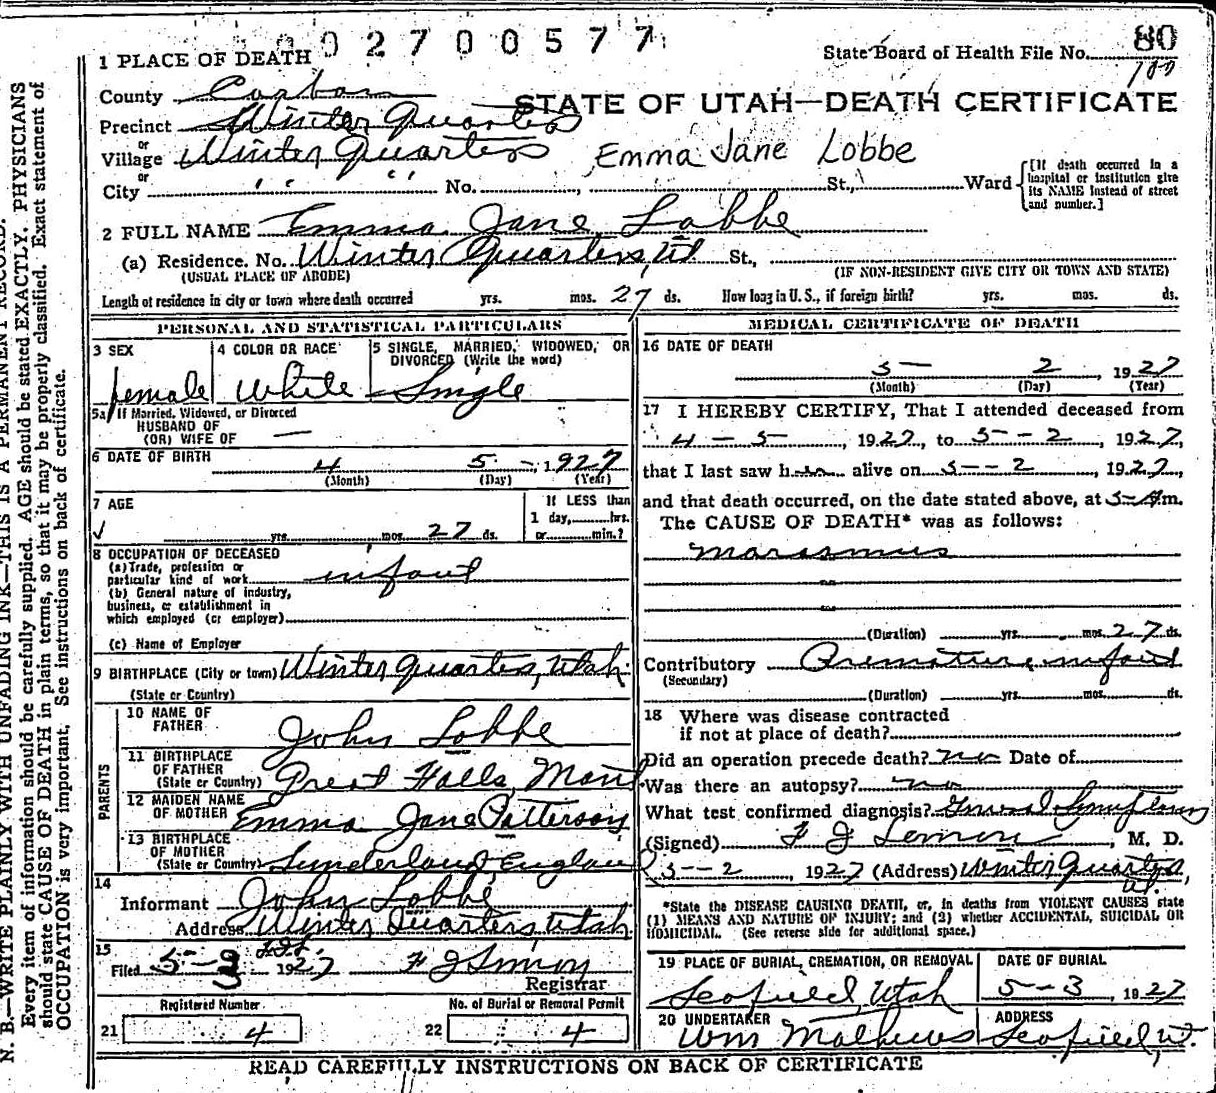 0 2 7 0 0 5 7 7
State Board of Health File No. 80
1 PLACE OF DEATH
County Carbon
STATE OF UTAH—DEATH CERTIFICATE
Precinct Winter Quarters
or
Village Winter Quarters Emma Jane Lobbe
or
City " " " No. St., Ward
[If death occurred in a hospital or institution give its NAME instead of street and number.]
2 FULL NAME Emma Jane Lobbe
(a) Residence. No. Winter Quarters, Ut St.,
(USUAL PLACE OF ABODE) (IF NON-RESIDENT GIVE CITY OR TOWN AND STATE)
Length of residence in city or town where death occurred yrs. mos. 27 ds. How long in U. S., if foreign birth? yrs. mos. ds.
PERSONAL AND STATISTICAL PARTICULARS
3 SEX
female
4 COLOR OR RACE
White
5 SINGLE, MARRIED, WIDOWED, OR DIVORCED (Write the word)
Single
5a If Married, Widowed, or Divorced
HUSBAND OF
(OR) WIFE OF —
6 DATE OF BIRTH
4 5 - 1927
(Month) (Day) (Year)
7 AGE
yrs. mos. 27 ds.
If LESS than
1 day, hrs.
or min.?
8 OCCUPATION OF DECEASED
(a) Trade, profession or
particular kind of work infant
(b) General nature of industry,
business, or establishment in
which employed (or employer)
(c) Name of Employer
9 BIRTHPLACE (City or town) Winter Quarters, Utah
(State or Country)
PARENTS
10 NAME OF
FATHER John Lobbe
11 BIRTHPLACE
OF FATHER
(State or Country) Great Falls, Mont
12 MAIDEN NAME
OF MOTHER Emma Jane Patterson
13 BIRTHPLACE
OF MOTHER
(State or Country) Sunderland, England
14
Informant John Lobbe
Address Winter Quarters, Utah
15
Filed 5-3 1927 F J Lemon
Registrar
Registered Number No. of Burial or Removal Permit
21 4 22 4
MEDICAL CERTIFICATE OF DEATH
16 DATE OF DEATH
5 2, 1927
(Month) (Day) (Year)
17 I HEREBY CERTIFY, That I attended deceased from
4-5-, 1927, to 5-2, 1927,
that I last saw h alive on 5-2, 1927,
and that death occurred, on the date stated above, at 5-A m.
The CAUSE OF DEATH* was as follows:
marasmus
(Duration) yrs. mos. 27 ds.
Contributory Premature infant
(Secondary)
(Duration) yrs. mos. ds.
18 Where was disease contracted
if not at place of death?
Did an operation precede death? no Date of
Was there an autopsy? no
What test confirmed diagnosis? General Symptoms
(Signed) F J Lemon, M. D.
5-2, 1927 (Address) Winter Quarters, Ut.
*State the DISEASE CAUSING DEATH, or, in deaths from VIOLENT CAUSES state
(1) MEANS AND NATURE OF INJURY; and (2) whether ACCIDENTAL, SUICIDAL OR
HOMICIDAL. (See reverse side for additional space.)
19 PLACE OF BURIAL, CREMATION, OR REMOVAL
Scofield, Utah
DATE OF BURIAL
5-3, 1927
20 UNDERTAKER
Wm Mathews
ADDRESS
Scofield, Ut.
READ CAREFULLY INSTRUCTIONS ON BACK OF CERTIFICATE
N. B.—WRITE PLAINLY WITH UNFADING INK—THIS IS A PERMANENT RECORD.
Every item of information should be carefully supplied. AGE should be stated EXACTLY. PHYSICIANS
should state CAUSE OF DEATH in plain terms, so that it may be properly classified. Exact statement of
OCCUPATION is very important. See instructions on back of certificate.